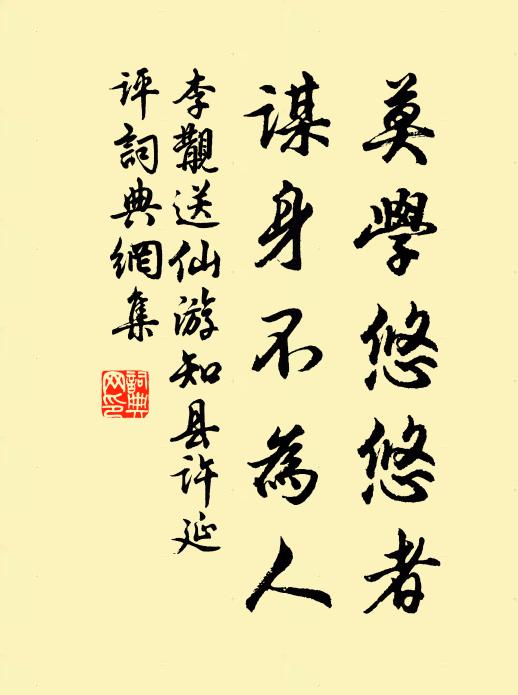 莫學悠悠者
謀身不為人
李覯送仙游知县许延
评詞典網集
詞典
网印